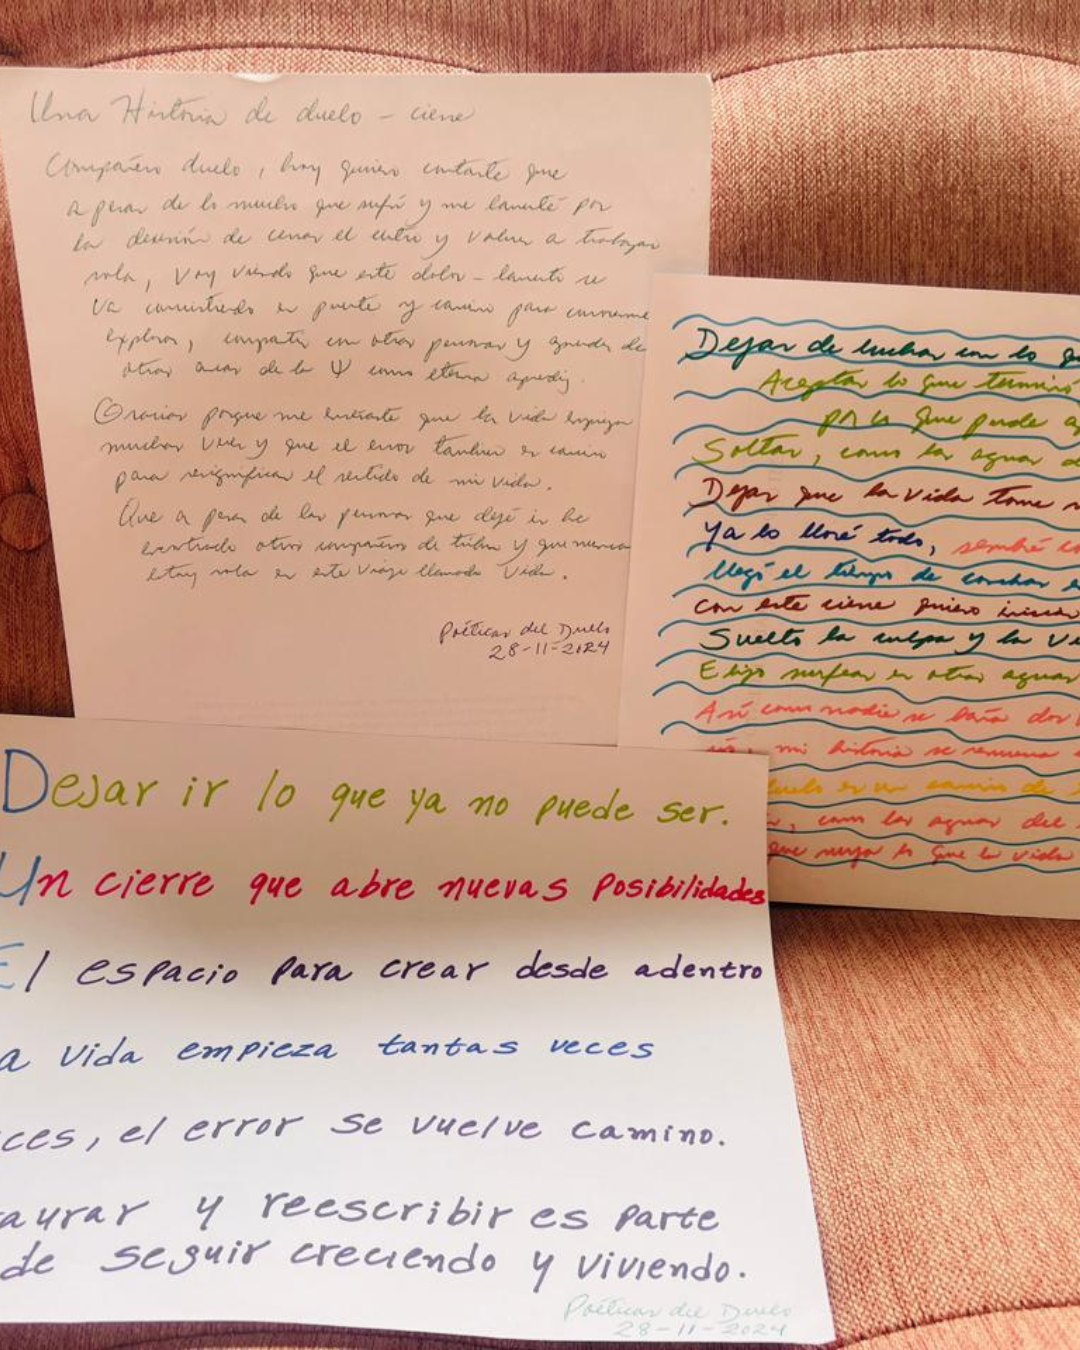 Una Historia de duelo – cierre
Compañero duelo, hoy quiero contarte que
a pesar de lo mucho que sufrí y me lamenté por
la decisión de cerrar el centro y volver a trabajar
sola, voy viendo que este dolor – lamento se
va convirtiendo en puente y camino para
explorar, compartir con otras personas y aprender de
otras áreas de la Ψ como eterna aprendiz.
Gracias porque me enseñaste que la vida empieza
muchas veces y que el error también es camino
para resignificar el sentido de mi vida.
Que a pesar de las personas que dejé ir he
encontrado otros compañeros de y que nunca
estoy sola en este viaje llamado Vida.
Poéticas del Duelo
28-11-2024
Dejar de luchar con lo q
Aceptar lo que terminó
por lo que puede
Soltar, como las aguas d
Dejar que la vida tome
Ya lo lloré todo, sembré
llegó el tiempo de cosechar
con este cierre quiero iniciar
Suelto la culpa y la
Elijo surfear en otras aguas
Así como nadie se baña dos
mi historia se renueva
duelo es un camino de
, como las aguas del
que surja lo que la vida
Dejar ir lo que ya no puede ser.
Un cierre que abre nuevas Posibilidades
El espacio para crear desde adentro
a vida empieza tantas veces
ces, el error se vuelve camino.
aurar y reescribir es parte
de seguir creciendo y viviendo.
Poéticas del Duelo
28-11-2024